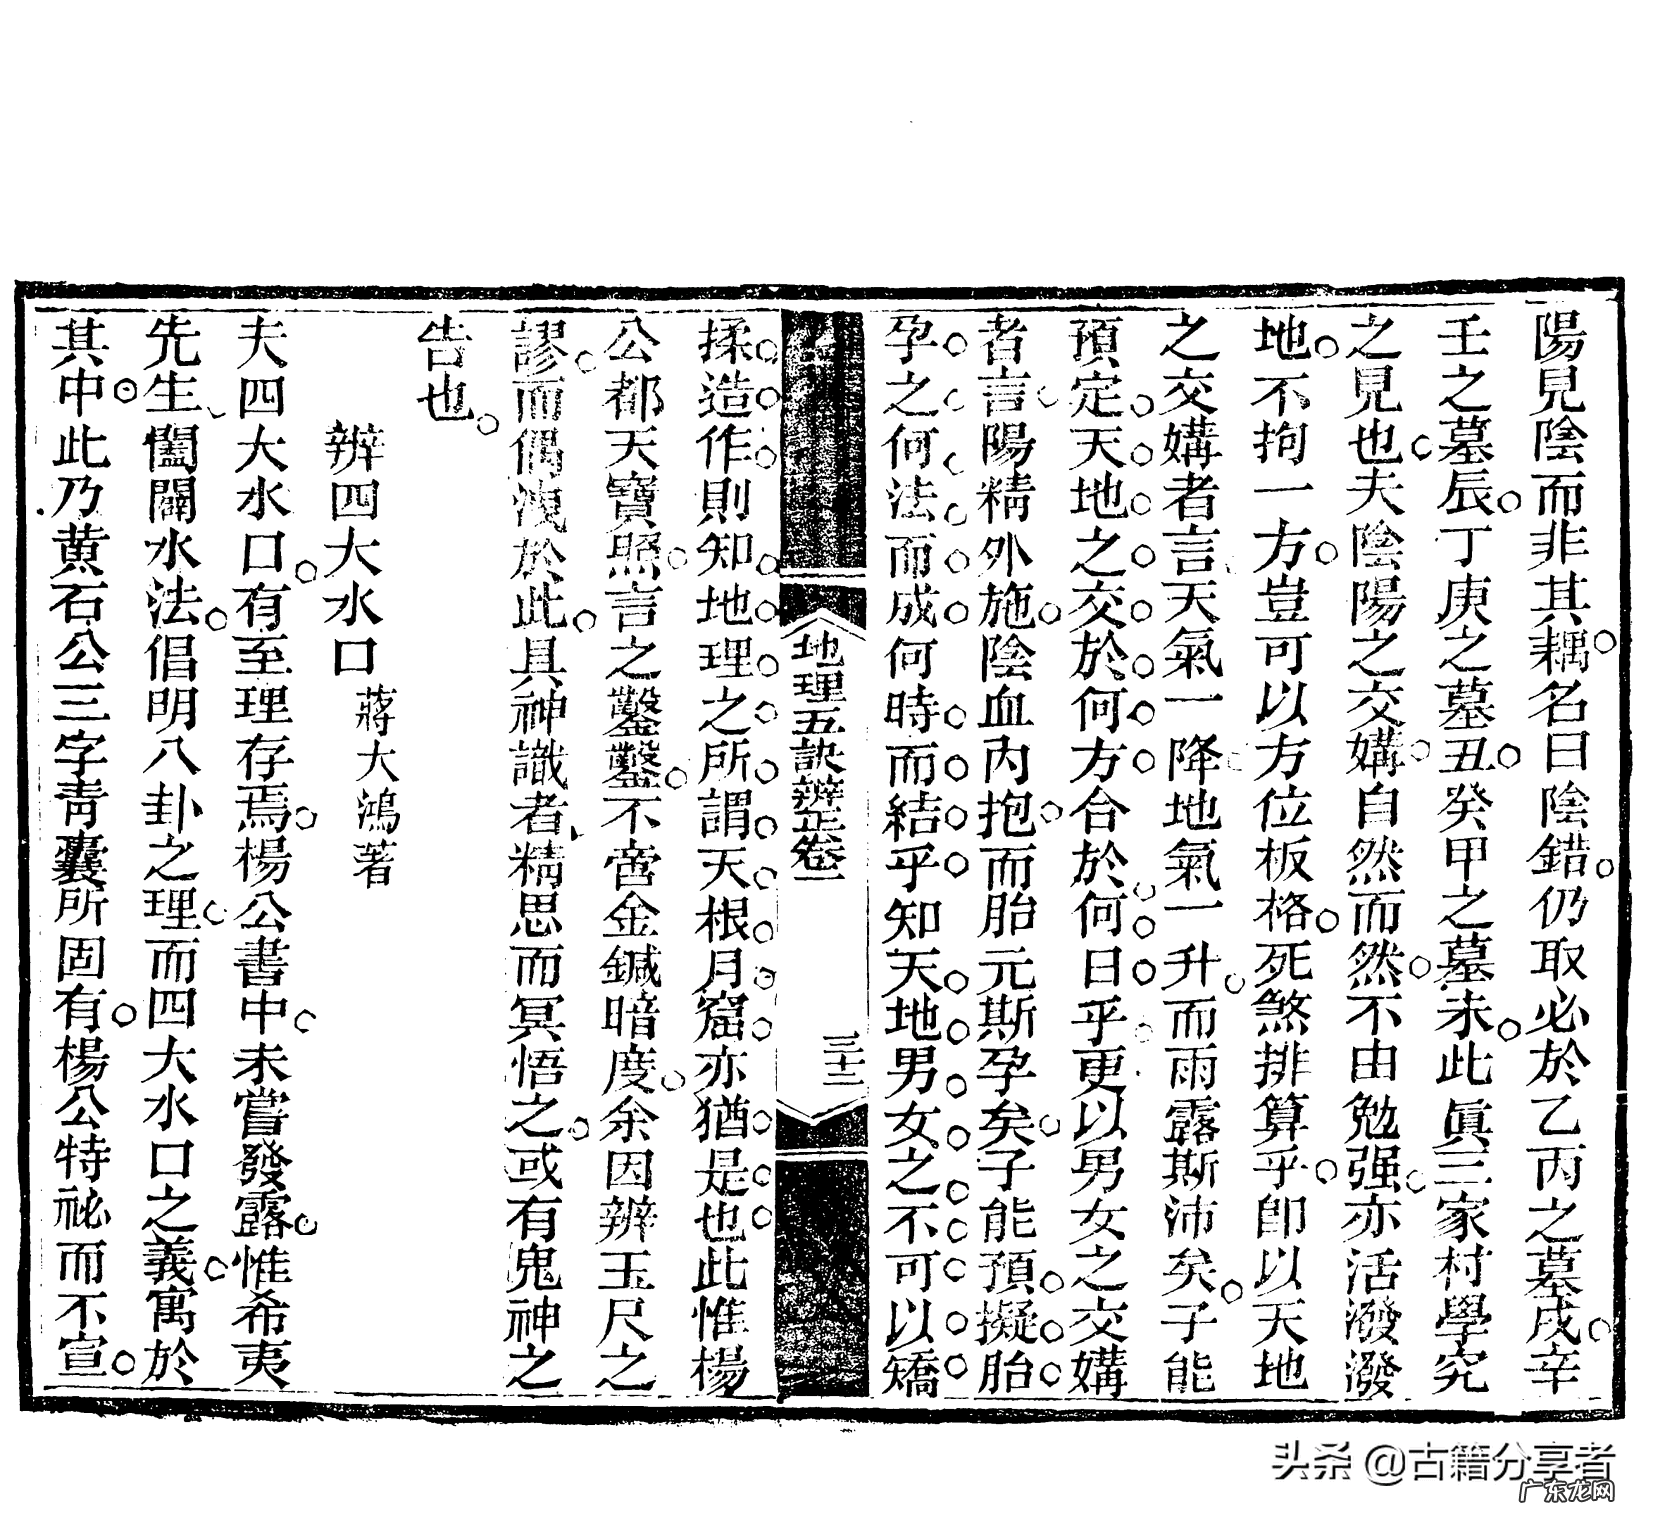 陽見陰而非其耦名曰陰錯仍取必於乙丙之墓戌辛
壬之墓辰丁庚之墓丑癸甲之墓未此眞三家村學究
之見也夫陰陽之交媾自然而然不由勉强亦活潑潑
地不拘一方豈可以方位板格死煞排算乎卽以天地
之交媾者言天氣一降地氣一升而雨露斯沛矣子能
預定天地之交於何方合於何日乎更以男女之交媾
者言陽精外施陰血內抱而胎元斯孕矣子能預擬胎
孕之何法而成何時而結乎知天地男女之不可以矯
地理五訣辨正卷一
三十三
揉造作則知地理之所謂天根月窟亦猶是也此惟楊
公都天寶照言之鑿鑿不啻金鍼暗度余因辨玉尺之
謬而偶洩於此具神識者精思而冥悟之或有鬼神之
告也
辨四大水口 蔣大鴻著
夫四大水口有至理存焉楊公書中未嘗發露惟希夷
先生闔闢水法倡明八卦之理而四大水口之義寓於
其中此乃黃石公三字靑囊所固有楊公特祕而不宣
头条 @古籍分享者
广东龙网